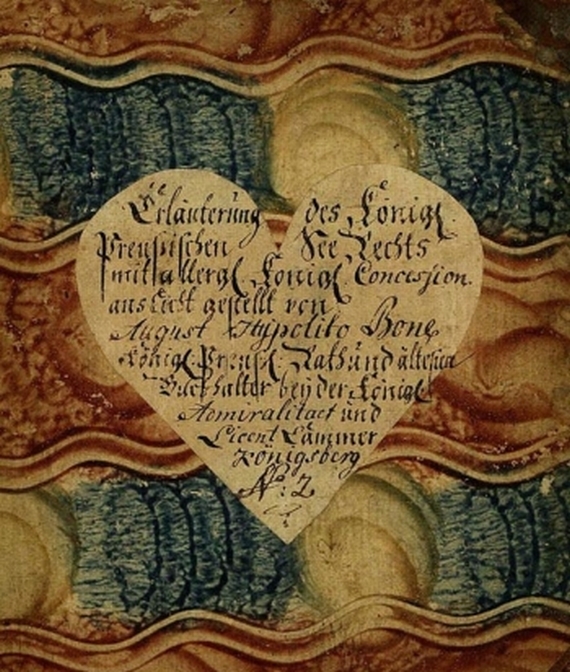 Erläuterung des Königl.
Preußischen See Rechts
mit allergl. Königl. Concession.
ans Licht gestellt von
August Hypolito Bone
Königl. Preuß. Rath und ältesten
Buchhalter bey der Königl.
Admiralitaet und
Licent Cammer
Königsberg
N: 2